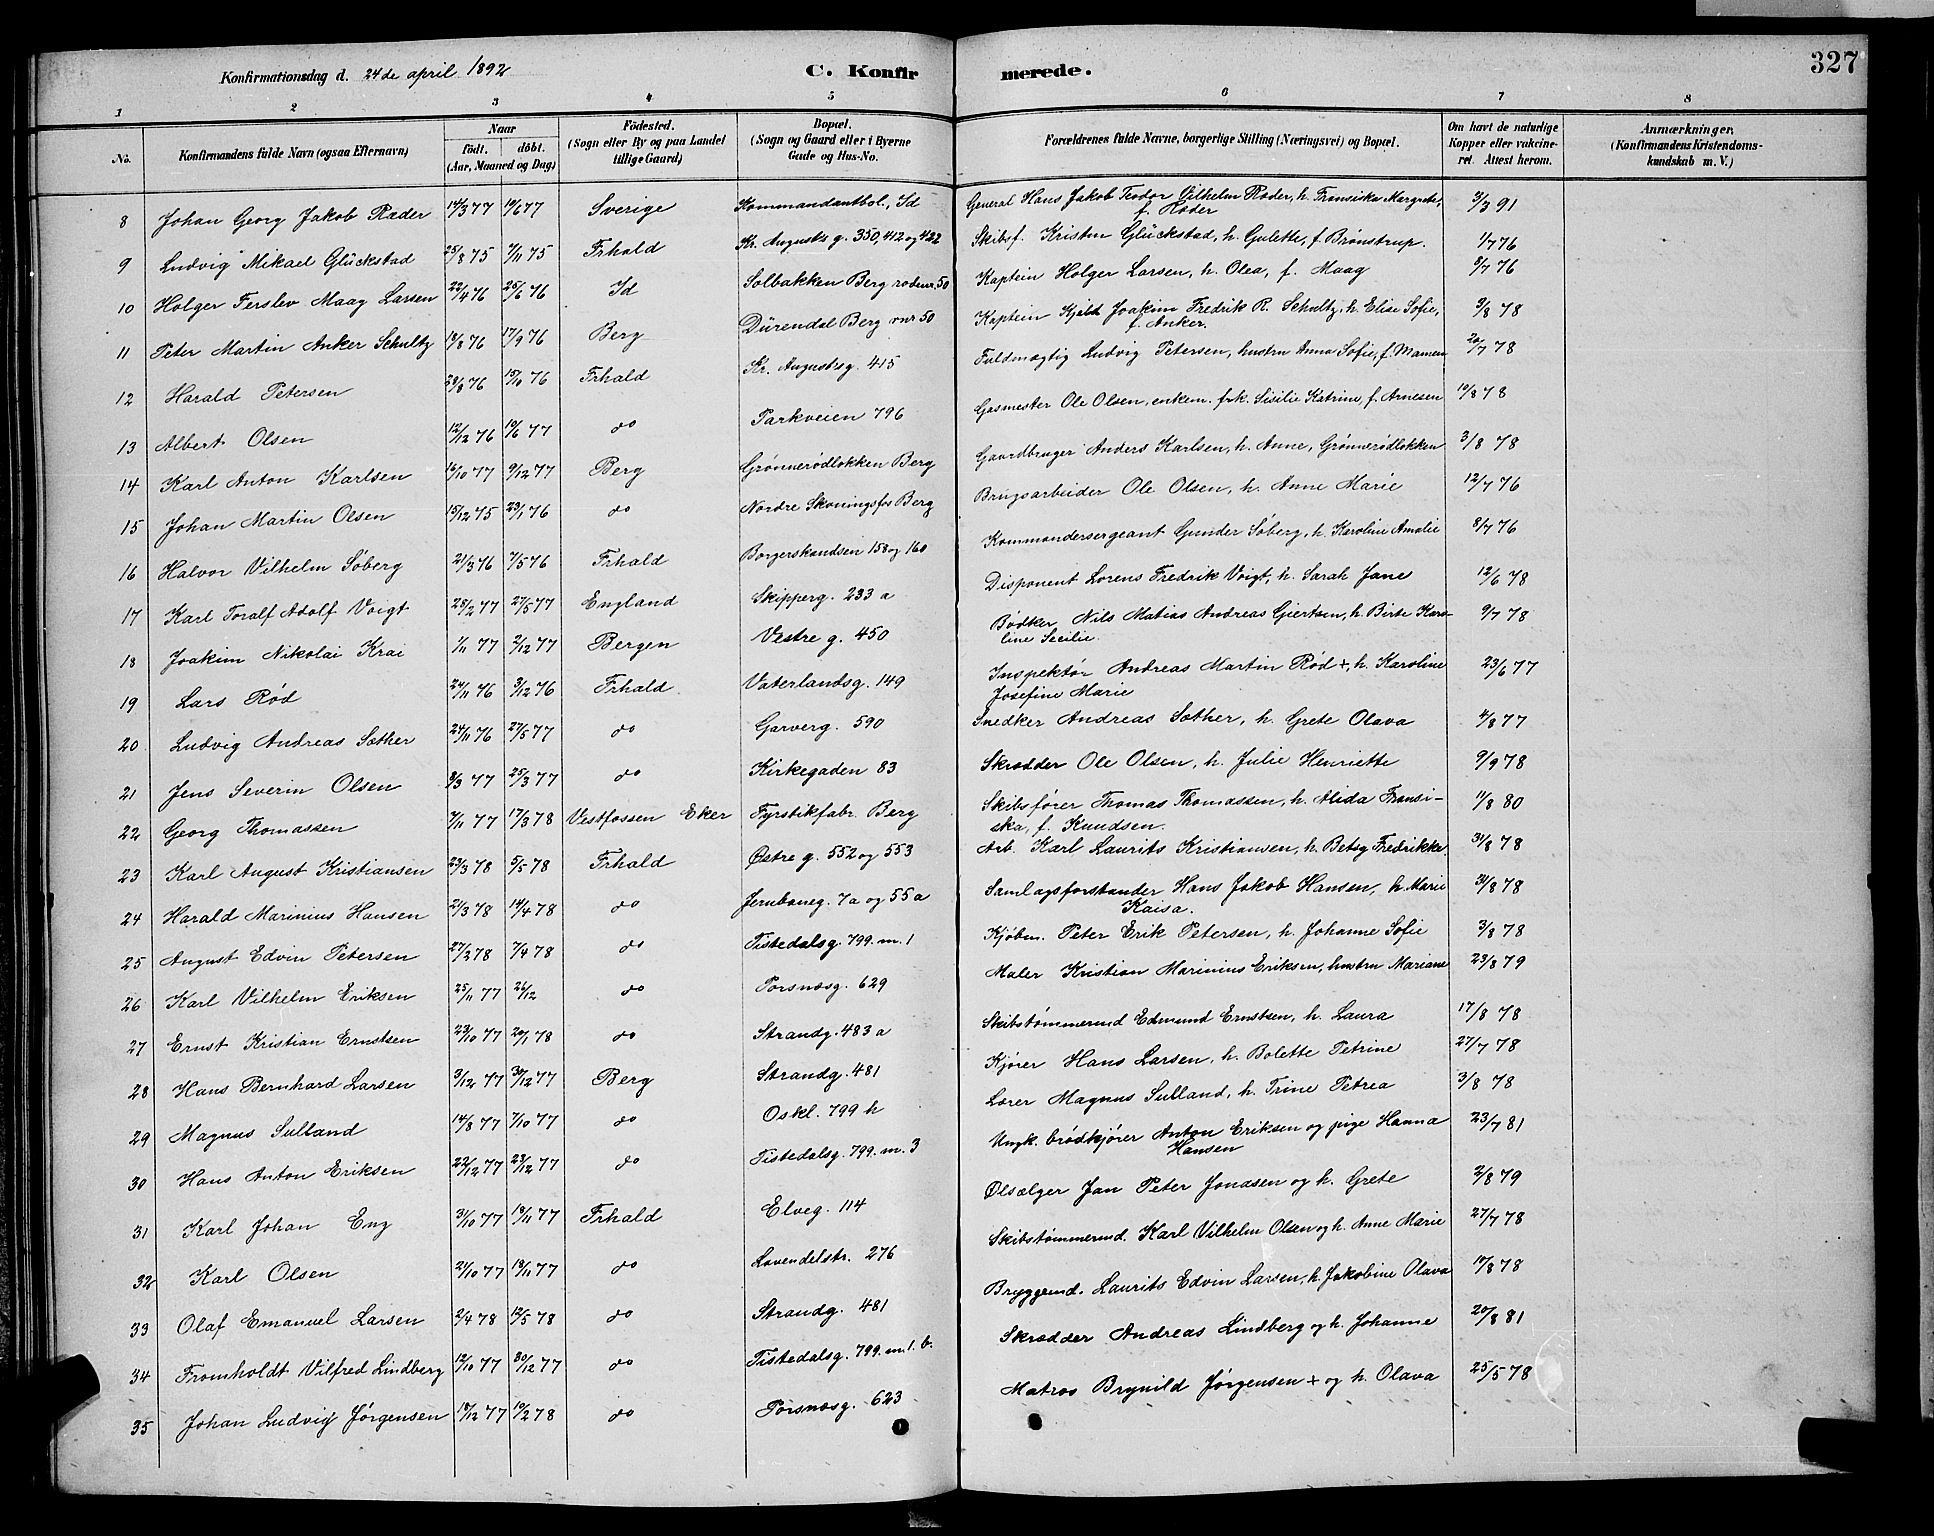 Konfirmationsdag d. 24de april 1892
C. Konfirmerede.
327
1 2 3 4 5 6 7 8
No. Konfirmandens fulde Navn (ogsaa Efternavn) Naar födt. döbt. (Aar, Maaned og Dag) Födested. (Sogn eller By og paa Landet tillige Gaard) Bopæl. (Sogn og Gaard eller i Byerne Gade og Hus-No. Forældrenes fulde Navne, borgerlige Stilling (Næringsvei) og Bopæl. Om havt de naturlige Kopper eller vakcineret. Attest herom. Anmærkninger, (Konfirmandens Kristendomskundskab m. V.)
8 Johan Georg Jakob Ræder 14/3 77 10/6 77 Sverige Kommandantbol., Id General Hans Jakob Teodor Vilhelm Ræder, h. Fransiska Margrete, f. Ræder 3/3 91
9 Ludvig Mikael Glückstad 25/8 75 7/11 75 Frhald Kr. Augusts g. 350, 412 og 422 Skibsf. Kristen Glückstad, h. Gulette, f. Brønstrup. 1/7 76
10 Holger Ferslev Maag Larsen 22/4 76 25/6 76 Id Solbakken Berg rodenr. 50 Kaptein Holger Larsen, h. Olea, f. Maag 8/7 76
11 Peter Martin Anker Schultz 19/8 76 17/9 76 Berg Dürendal Berg rnr 50 Kaptein Kjeld Joakim Fredrik R. Schultz, h. Elise Sofie, f. Anker. 9/8 78
12 Harald Petersen 29/8 76 15/10 76 Frhald Kr. Augustsg. 415 Fuldmægtig Ludvig Petersen, hustru Anna Sofie, f. Mamen 20/7 78
13 Albert Olsen 12/12 76 10/6 77 do Parkveien 796 Gasmester Ole Olsen, enkem. frk. Sisilie Katrine, f. Arnesen 10/8 78
14 Karl Anton Karlsen 16/10 77 9/12 77 Berg Grønnerødløkken Berg Gaardbruger Anders Karlsen, h. Anne, Grønnerødløkken 3/8 78
15 Johan Martin Olsen 15/12 75 23/1 76 do Nordre Skoningsfos Berg Brugsarbeider Ole Olsen, h. Anne Marie 12/7 76
16 Halvor Vilhelm Söberg 21/3 76 7/5 76 Frhald Borgerskandsen 158 og 160 Kommandersergeant Gunder Söberg, h. Karoline Amalie 8/7 76
17 Karl Toralf Adolf Voigt 28/2 77 27/5 77 England Skipperg. 233 a Disponent Lorens Fredrik Voigt, h. Sarah Jane 12/6 78
18 Joakim Nikolai Krai 1/11 77 2/12 77 Bergen Vestre g. 450 Bødker Nils Matias Andreas Giertsen, h. Birte Karoline Secilie. 9/7 78
19 Lars Rød 24/11 76 3/12 76 Frhald Vaterlandsg. 149 Inspektør Andreas Martin Rød +, h. Karoline Josefine Marie 23/6 77
20 Ludvig Andreas Sæther 24/11 76 27/5 77 do Garverg. 590 Snedker Andreas Sæther, h. Grete Olava 4/8 77
21 Jens Severin Olsen 8/3 77 25/3 77 do Kirkegaden 83 Skrædder Ole Olsen, h. Julie Henriette 9/9 78
22 Georg Thomassen 7/11 77 17/3 78 Vestfossen Eker Fyrstikfabr. Berg Skibsfører Thomas Thomassen, h. Alida Fransiska, f. Knudsen. 11/8 80
23 Karl August Kristiansen 23/3 78 5/5 78 Frhald Østre g. 552 og 553 Arb. Karl Laurits Kristiansen, h. Betsy Fredrikke. 31/8 78
24 Harald Marinius Hansen 21/3 78 14/4 78 do Jernbaneg. 7a og 55a Samlagsforstander Hans Jakob Hansen, h. Marie Kaisa. 31/8 78
25 August Edvin Petersen 27/2 78 7/4 78 do Tistedalsg. 799. m. 1 Kjøbm. Peter Erik Petersen, h. Johanne Sofie 3/8 78
26 Karl Vilhelm Eriksen 25/11 77 26/12 do Torsnæsg. 629 Maler Kristian Marinius Eriksen, hustru Mariane 23/8 79
27 Ernst Kristian Ernstsen 23/10 77 20/1 78 do Strandg. 483 a Skibstømmermd Edmund Ernstsen, h. Laura 17/8 78
28 Hans Bernhard Larsen 3/12 77 30/12 77 Berg Strandg. 481 Kjører Hans Larsen, h. Bolette Petrine 27/7 78
29 Magnus Sulland 14/8 77 7/10 77 do Oskl. 799 h Lærer Magnus Sulland, h. Trine Petrea 3/8 78
30 Hans Anton Eriksen 22/12 77 23/12 77 do Tistedalsg. 799. m. 3 Ungk. brødkjører Anton Eriksen og pige Hanna Hansen 23/7 81
31 Karl Johan Eng 3/10 77 18/11 77 Frhald Elveg. 114 Ølsælger Jan Peter Jonasen og h. Grete 2/8 79
32 Karl Olsen 21/10 77 18/11 77 do Lavendelstr. 276 Skibstømmermd. Karl Vilhelm Olsen og h. Anne Marie 27/7 78
33 Olaf Emanuel Larsen 2/4 78 12/5 78 do Strandg. 481 Bryggemd. Laurits Edvin Larsen, h. Jakobine Olava 10/8 78
34 Fromholdt Vilfred Lindberg 12/10 77 30/12 77 do Tistedalsg. 799. m. 1. b. Skrædder Andreas Lindberg og h. Johanne 20/8 81
35 Johan Ludvig Jørgensen 18/12 77 10/2 78 do Torsnæsg. 623 Matros Brynild Jørgensen + og h. Olava 25/5 78